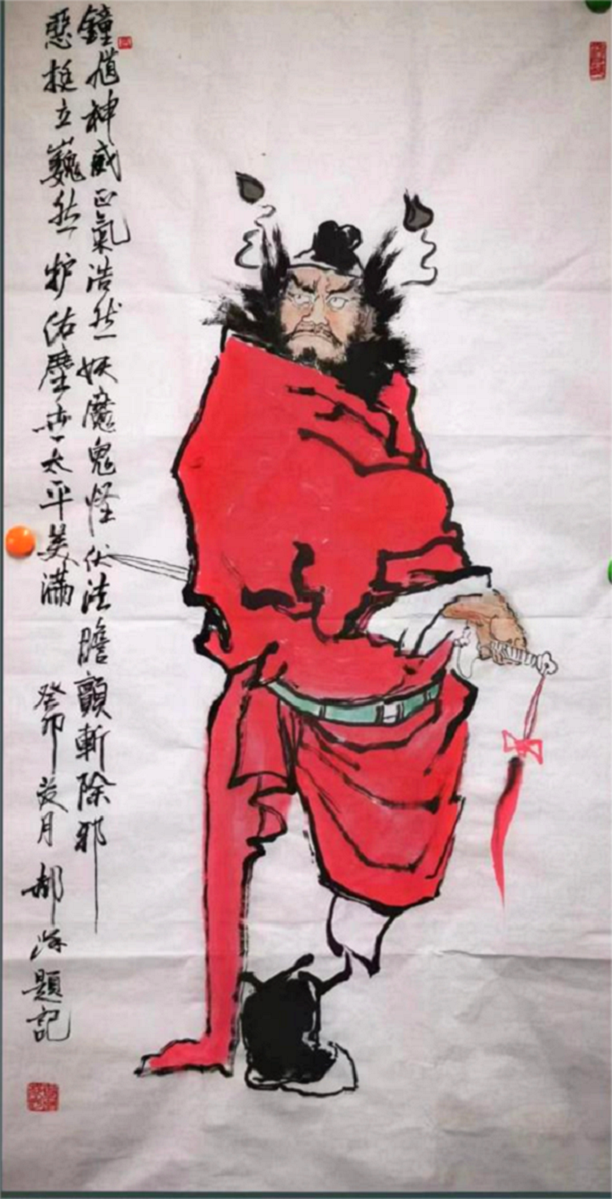 鐘馗神威正氣浩然妖魔鬼怪伏法瞻顫斬除邪
惡挺立巍然护佑塵世太平美滿
癸卯 月郝 題記